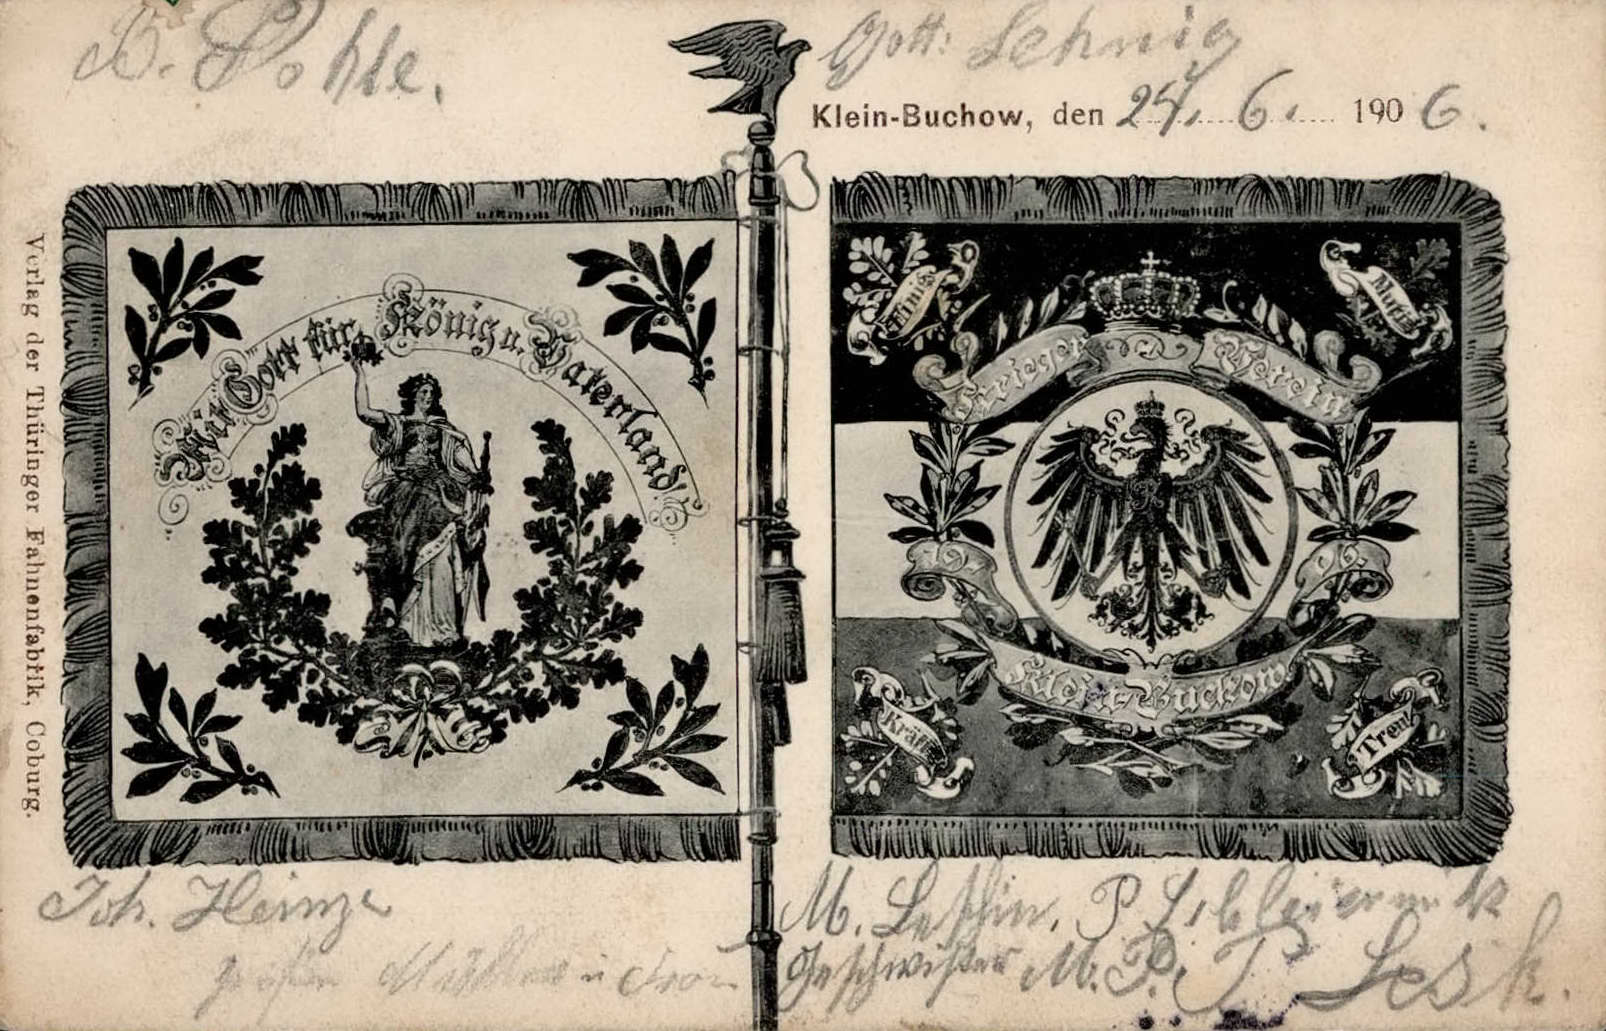 B. Pohle.
Gott: Lehnig
Klein-Buchow, den 24. 6. 1906.
Verlag der Thüringer Fahnenfabrik, Coburg.
Mit Gott für König u. Vaterland.
Einig
Mutig
Krieger Verein
19 06.
Klein-Buckow
Kräftig
Treu!
Joh. Heinze
M. P.
grüßen u Frau
Geschwister M. P. T. Lesk.